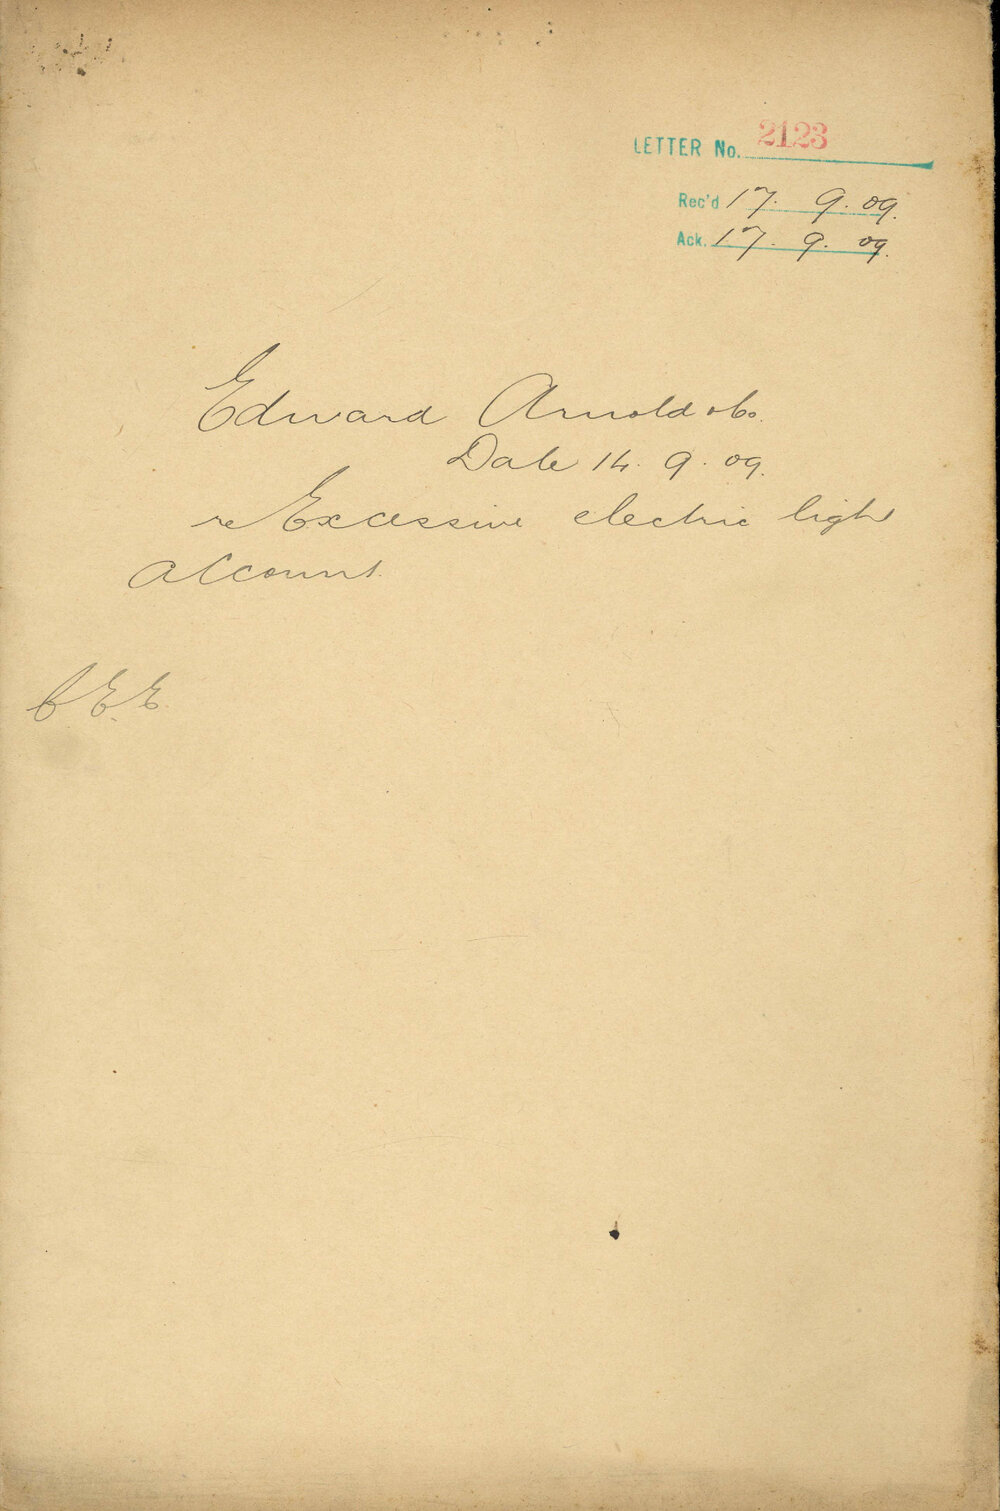 LETTER No. 2123
Rec'd 17. 9. 09.
Ack. 17. 9. 09.
Edward Arnold & Co.
Date 14. 9. 09.
re Excessive electric light
account.
C.E.E.